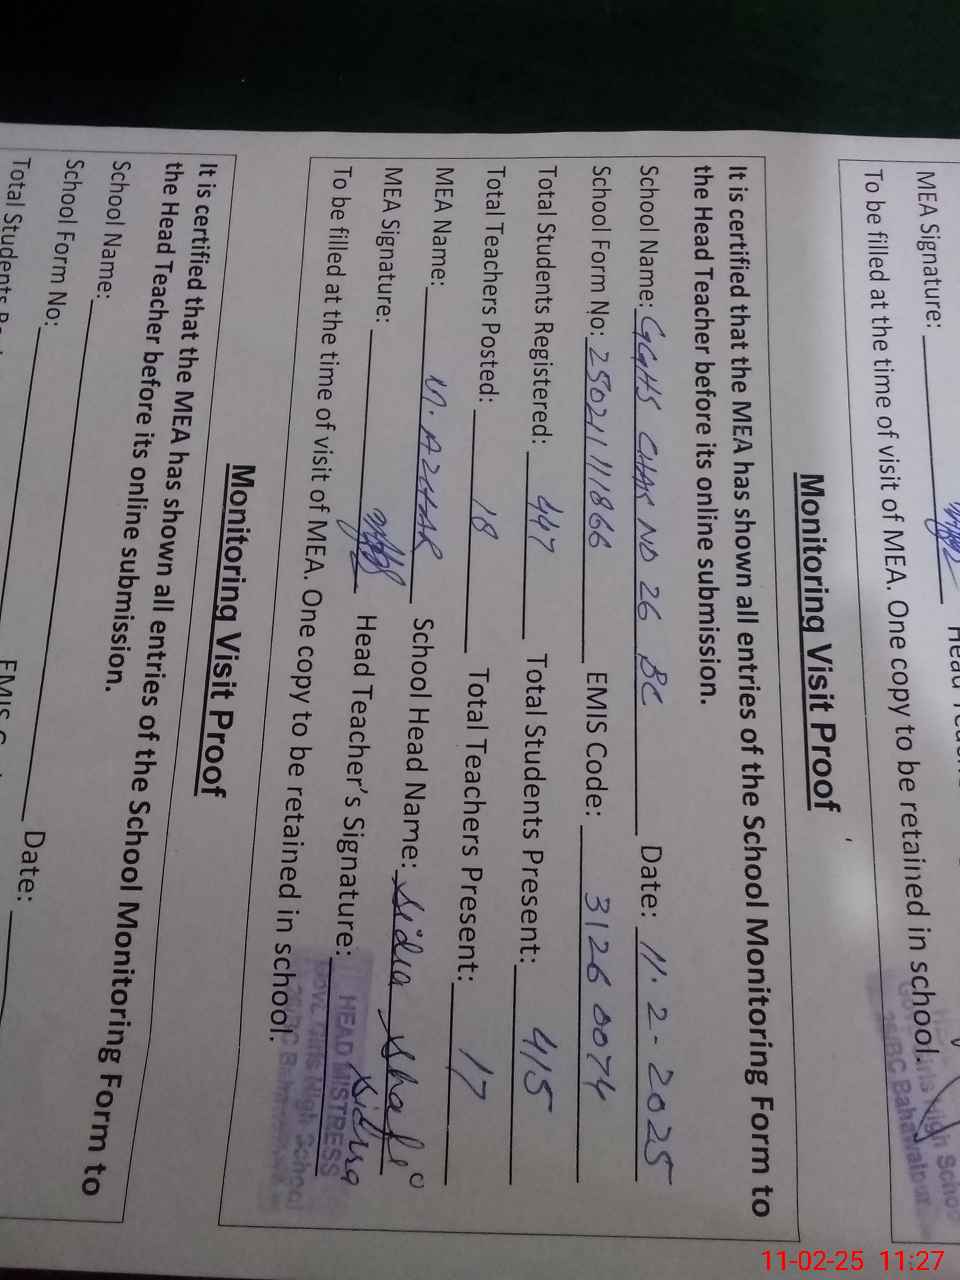 MEA Signature:
To be filled at the time of visit of MEA. One copy to be retained in school.
Girls High School
26/BC Bahawalpur
Monitoring Visit Proof
It is certified that the MEA has shown all entries of the School Monitoring Form to
the Head Teacher before its online submission.
School Name: GGHS CHAK NO 26 BC Date: 11-2-2025
School Form No: 25021111866 EMIS Code: 31260074
Total Students Registered: 447 Total Students Present: 415
Total Teachers Posted: 18 Total Teachers Present: 17
MEA Name: M. AZHAR School Head Name: Sidra Shafi
MEA Signature: Head Teacher's Signature: Sidra
HEAD MISTRESS
Govt. Girls High School
26/BC Bahawalpur
To be filled at the time of visit of MEA. One copy to be retained in school.
Monitoring Visit Proof
It is certified that the MEA has shown all entries of the School Monitoring Form to
the Head Teacher before its online submission.
School Name: Date:
School Form No: EMIS
Total Students
11-02-25 11:27